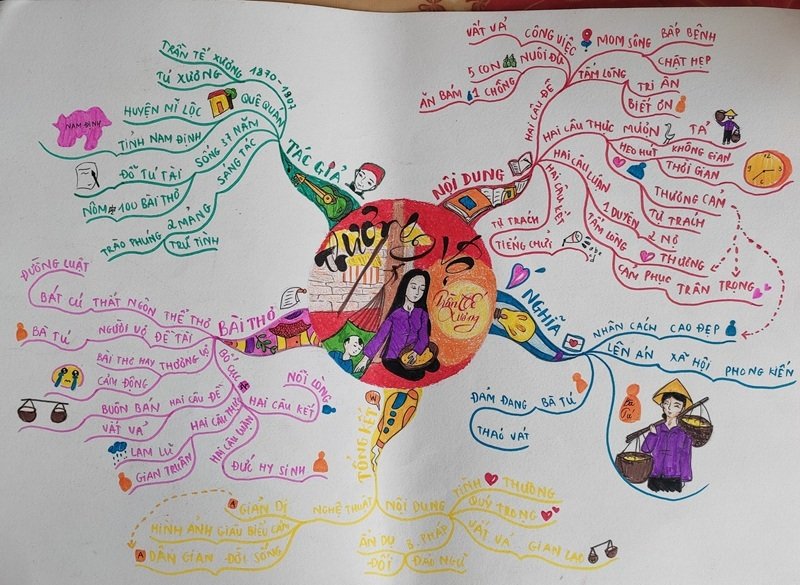 Thương Vợ
Trần Tế Xương
TÁC GIẢ
TRẦN TẾ XƯƠNG 1870-1907
TÚ XƯƠNG
QUÊ QUÁN
HUYỆN MĨ LỘC
TỈNH NAM ĐỊNH
NAM ĐỊNH
SỐNG 37 NĂM
ĐỖ TÚ TÀI
SÁNG TÁC
NÔM 100 BÀI THƠ
2 MẢNG
TRÀO PHÚNG
TRỮ TÌNH
NỘI DUNG
HAI CÂU ĐỀ
CÔNG VIỆC
VẤT VẢ
MOM SÔNG
BẤP BÊNH
CHẬT HẸP
NUÔI ĐỦ
5 CON
1 CHỒNG
ĂN BÁM
TẤM LÒNG
TRI ÂN
BIẾT ƠN
HAI CÂU THỰC
MƯỢN
TẢ
HEO HÚT
KHÔNG GIAN
THỜI GIAN
THƯƠNG CẢM
TỰ TRÁCH
HAI CÂU LUẬN
1 DUYÊN 2 NỢ
TẤM LÒNG
THƯƠNG
CẢM PHỤC TRÂN TRỌNG
HAI CÂU KẾT
TỰ TRÁCH
TIẾNG CHỬI
Ý NGHĨA
NHÂN CÁCH CAO ĐẸP
LÊN ÁN XÃ HỘI PHONG KIẾN
BÀ TÚ
ĐẢM ĐANG
THÁO VÁT
Bà Tú
TỔNG KẾT
NỘI DUNG
TÌNH THƯƠNG
QUÝ TRỌNG
VẤT VẢ GIAN LAO
B. PHÁP
ẨN DỤ
ĐỐI
ĐẢO NGỮ
NGHỆ THUẬT
GIẢN DỊ
HÌNH ẢNH GIÀU BIỂU CẢM
DÂN GIAN ĐỜI SỐNG
BÀI THƠ
THỂ THƠ
THẤT NGÔN
BÁT CÚ
ĐƯỜNG LUẬT
ĐỀ TÀI
NGƯỜI VỢ
BÀ TÚ
BÀI THƠ HAY THƯƠNG VỢ
CẢM ĐỘNG
BỐ CỤC
HAI CÂU ĐỀ
BUÔN BÁN
VẤT VẢ
HAI CÂU THỰC
LAM LŨ
GIAN TRUÂN
HAI CÂU LUẬN
ĐỨC HY SINH
HAI CÂU KẾT
NỖI LÒNG